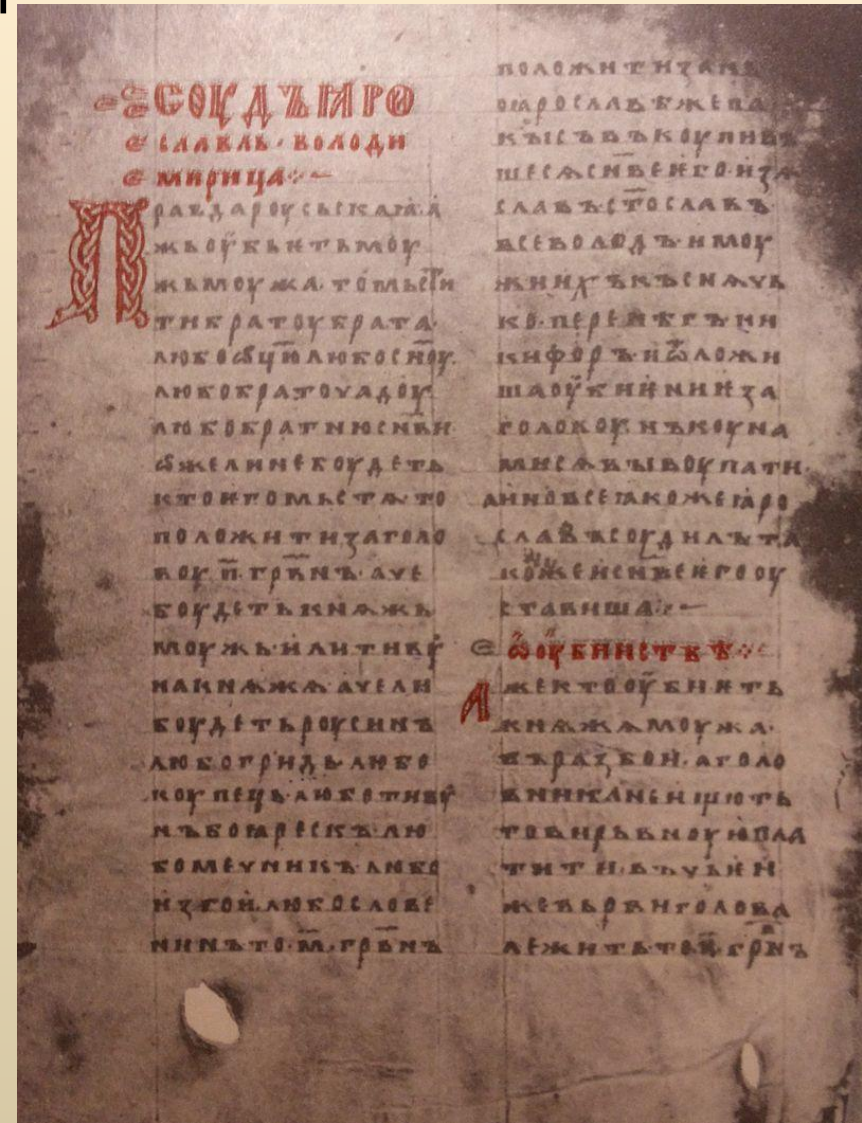 СОУДЪ ꙖРО
СЛАВЛЬ · ВОЛОДИ
МИРИЦА
Правда роусьскаꙗ · а
жь оубьѥть моу
жь моужа · то мьстї
ти братоу брата ·
любо ѡц҃ю любо сн҃оу ·
любо братоучадоу ·
любо братню сн҃ви
ѡже ли не боудеть
кто ѥго мьстѧ то
положити за голо
воу · п҃ · грв҃нъ · аче
боудеть кнѧжь
моужь · или тиву
на кнѧжѧ · аче ли
боудеть роусинъ
любо гридь · любо
коупець · любо тиву
нъ боꙗрескъ · лю
бо мечникъ · любо
изгои · любо слове
нинъ то · м҃ · грв҃нъ
положити за нь
о ꙗрославѣ же па
кы съвъкоупивъ
шесѧ сн҃ве ѥго · изѧ
славъ ст҃ославъ ·
всеволодъ · и моу
жи ихъ къснѧчь
ко · перенѣгъ ни
кифоръ · и ѿложи
ша оубиѥниѥ за
головоу · нъ коуна
ми сѧ выкоупати ·
а ино все ꙗкоже ꙗро
славъ соудилъ та
коже и сн҃ве ѥго оу
ставиша
ѡ оубииствѣ
Аже кто оубиѥть
кнѧжѧ моужа ·
въ разбои · а голо
вника не ищють
то вирьвноую пла
тити · въ чьѥи
же вьрви голова
лежить то п҃ · грв҃нъ